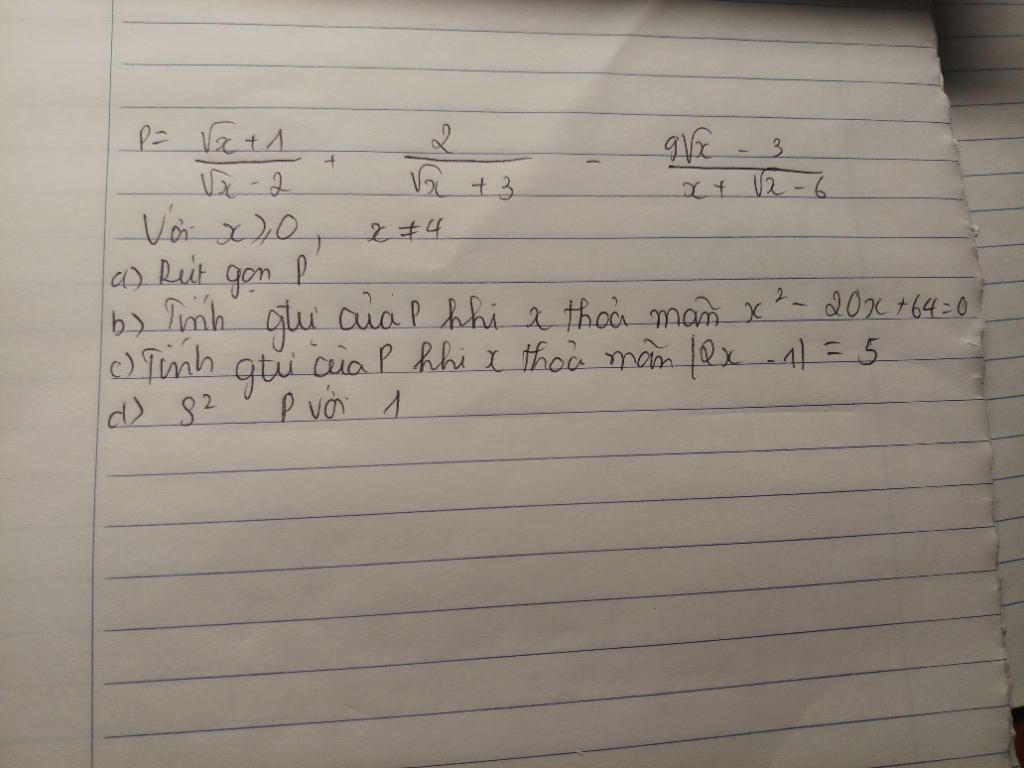 P = (√x + 1)/(√x - 2) + 2/(√x + 3) - (9√x - 3)/(x + √x - 6)
Với x ⩾ 0, x ≠ 4
a) Rút gọn P
b) Tính gtrị của P khi x thoả mãn x² - 20x + 64 = 0
c) Tính gtrị của P khi x thoả mãn |2x - 1| = 5
d) S² P với 1